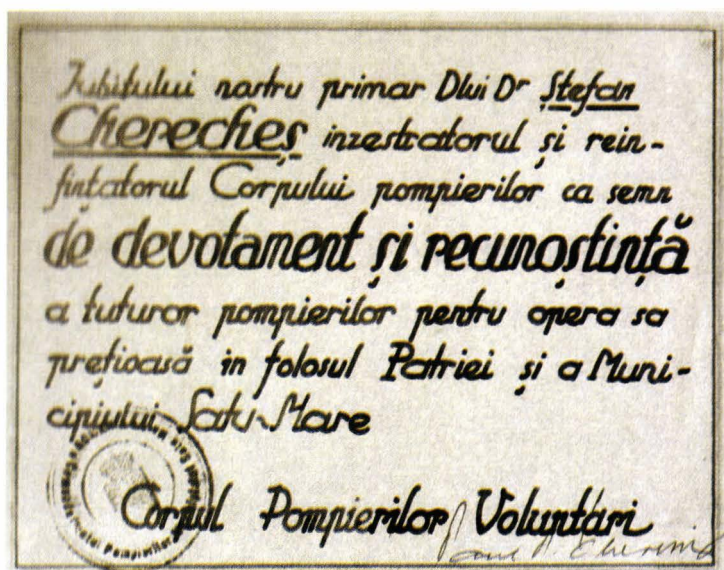 Iubitului nostru primar Dlui Dr Ștefan
Cherecheș inzestratorul și rein-
fințatorul Corpului pompierilor ca semn
de devotament și recunoștință
a tuturor pompierilor pentru opera sa
prețioasă in folosul Patriei și a Muni-
cipiului Satu-Mare
Corpul Pompierilor Voluntari